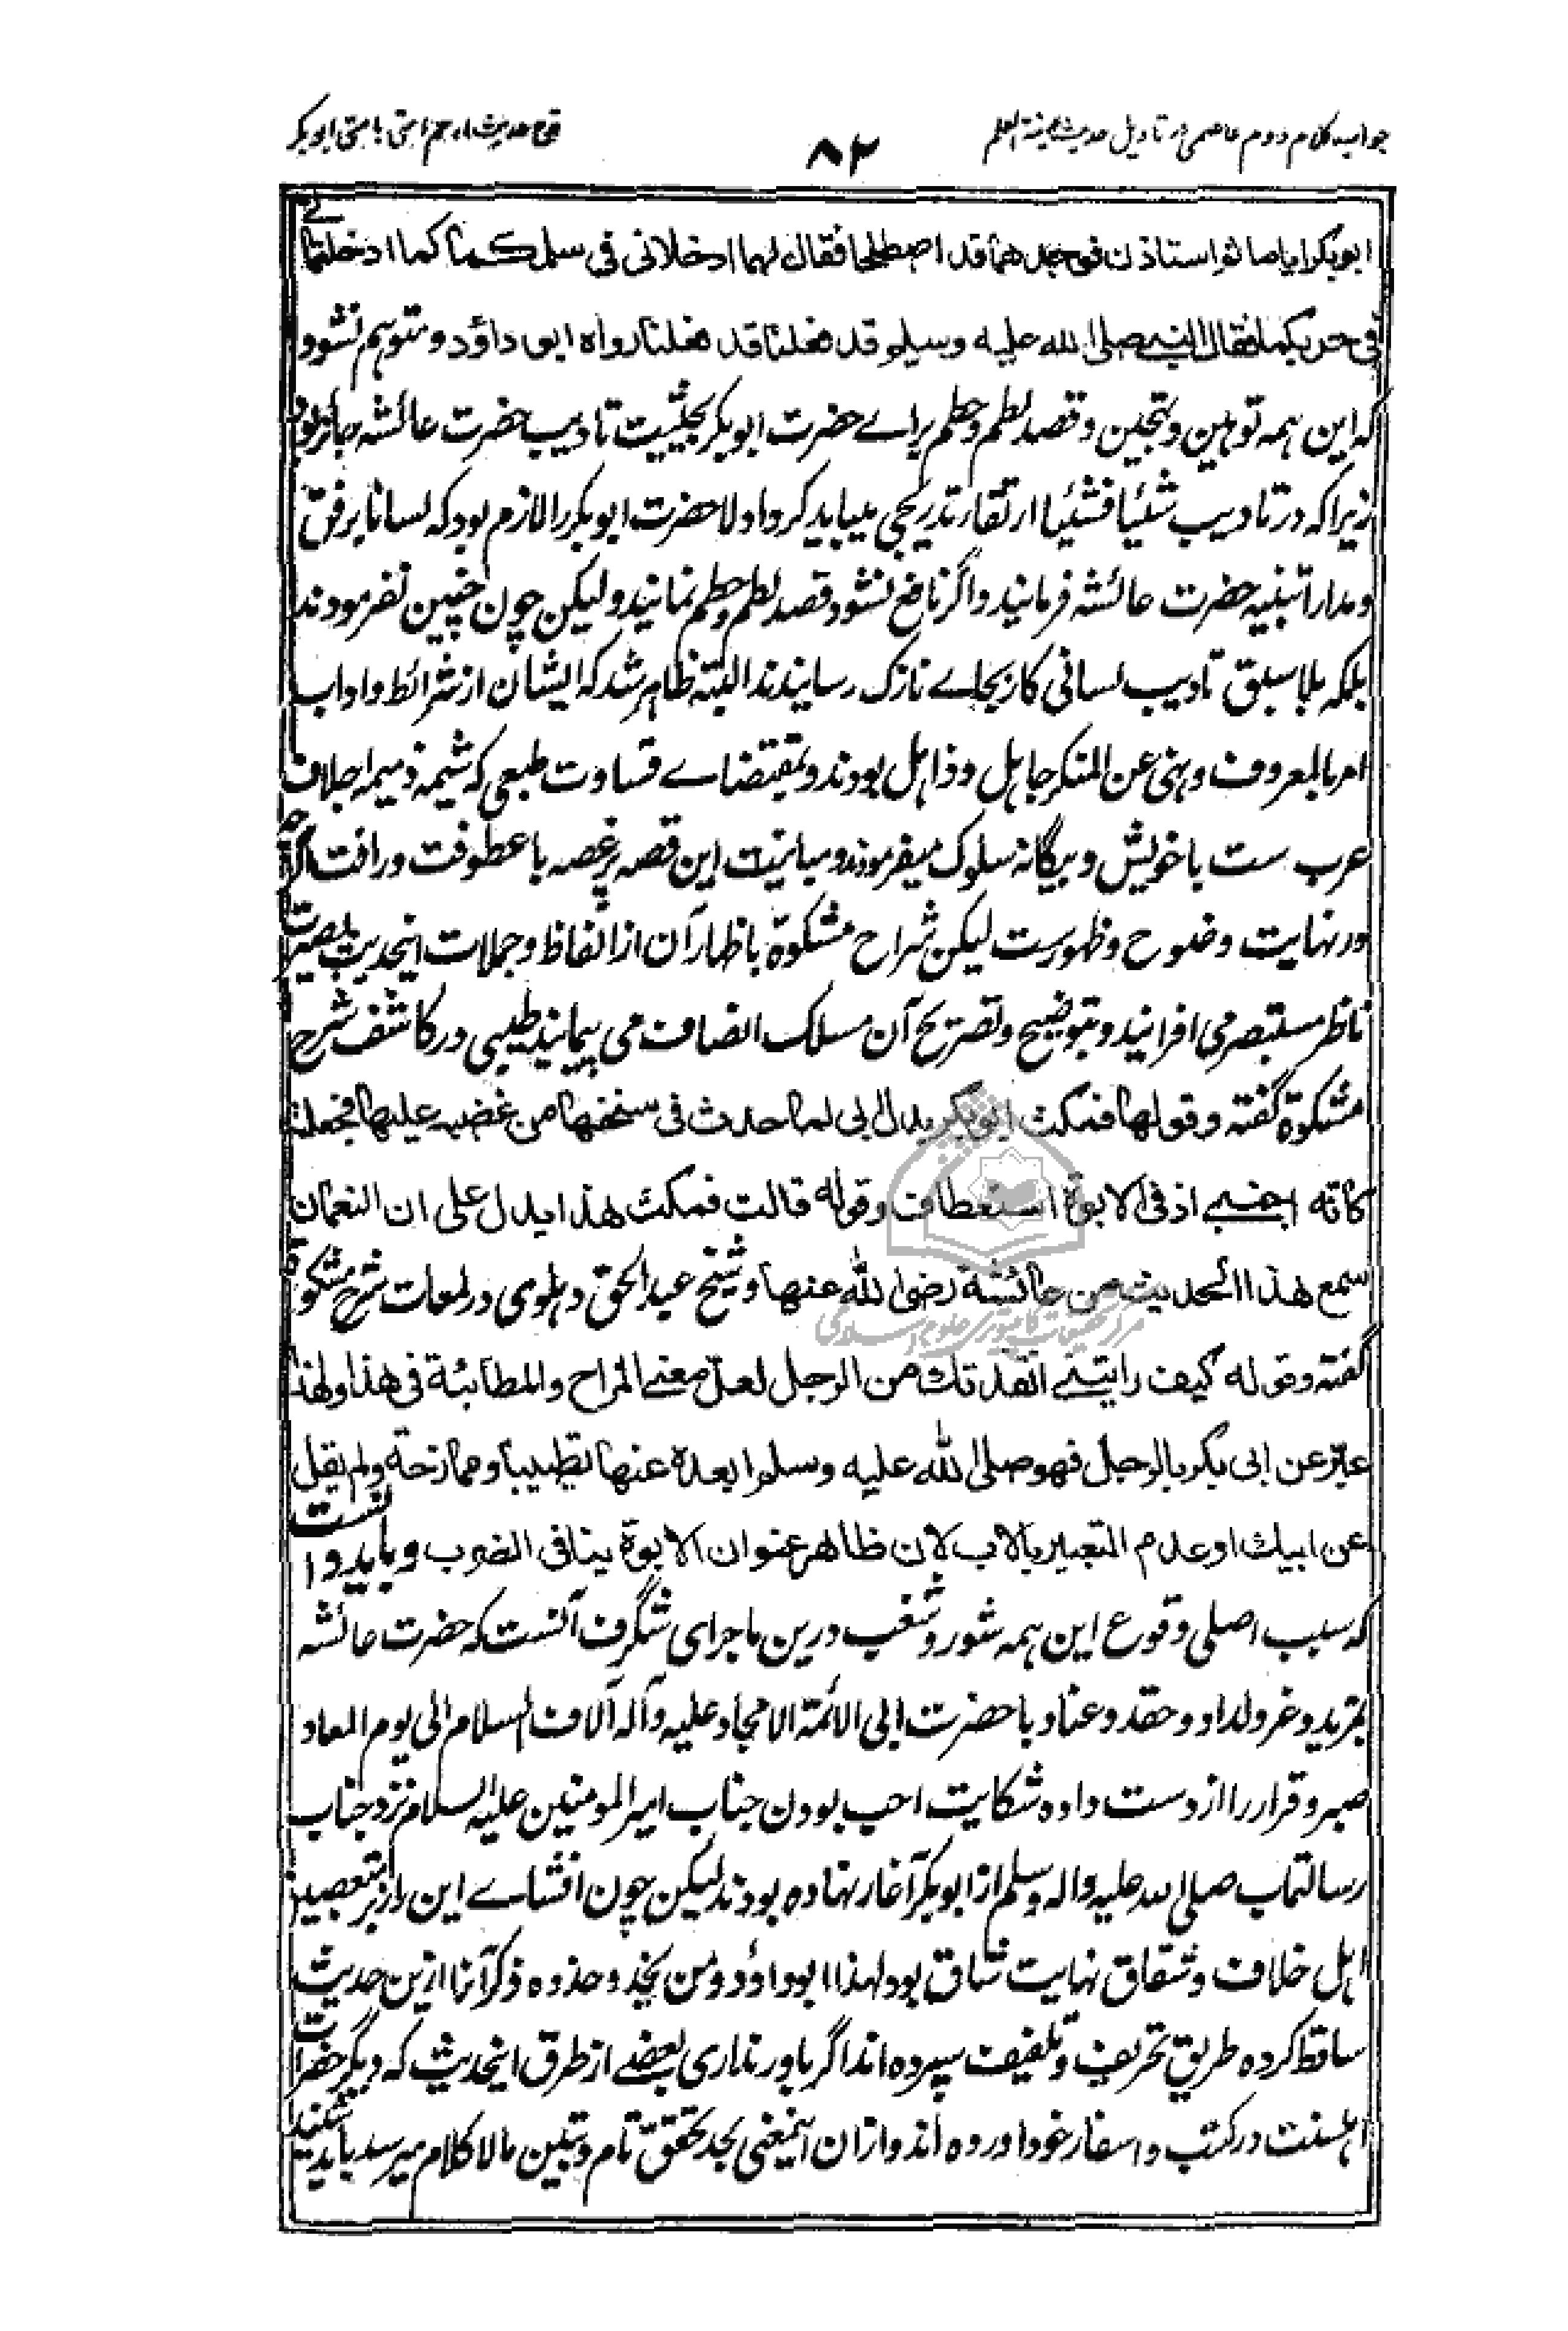 جواب کلام دوم عاصمی در تاویل حدیث مدینة العلم
۸۲
قدح حدیث ارحم امتی بامتی ابوبکر
ابوبکر ایاما ثم استاذن فوجدهما قد اصطلحا فقال لهما ادخلانی فی سلمكما كما ادخلتمانے
فی حربكما فقال النبی صلی الله علیه وسلم قد فعلنا قد فعلنا رواه ابی داؤد و متوہم نشود
کہ این ہمہ توہین و تہجین و قصد لطم و حطم براے حضرت ابوبکر بحیثیت تادیب حضرت عائشہ جائز بود
زیرا کہ در تادیب شیئا فشیئا ارتقاء تدریجی میباید کرد اولا حضرت ابوبکر را لازم بود کہ لسانا برفق
و مدارا تنبیہ حضرت عائشہ فرمایند و اگر نافع نشود قصد لطم و حطم نمایند و لیکن چون چنین نفرمودند
بلکہ بلا سبق تادیب لسانی کار بجاے نازک رسانیدند البتہ ظاہر شد کہ ایشان از شرائط و اداب
امر بالمعروف و نہی عن المنکر جاہل و ذاہل بودند و بمقتضاے قساوت طبعی کہ شیمہ ذمیمہ اجلاف
عرب ست با خویش و بیگانہ سلوک میفرمودند و مباینت این قصہ پرغصہ با عطوفت و رافت اگرچہ
در نهایت وضوح و ظهورست لیکن شراح مشکوة باظهار آن از الفاظ و جملات اینحدیث بصیرت
ناظر مستبصر می افزایند و بتوضیح و تصریح آن مسلک انصاف می پیمایند طیبی در کاشف شرح
مشکوة گفته و قولها فمکث ابوبکر یدل الی لها حدث فی سخفها من غضبه علیها فجعلت
کانه اجنبے اذ فی الابوة استعطاف و قوله قالت فمکث هذا یدل علی ان النعمان
سمع هذا الحدیث من عائشة رضی الله عنها و شیخ عبد الحق دہلوی در لمعات شرح مشکوة
گفته و قوله کیف رایتنے انقذتك من الرجل لعل معنے المزاح والمطائبة فی هذا ولهذا
عبر عن ابی بکر بالرجل فهو صلی الله علیه وسلم ابعده عنها تطییبا و ممازحة ولم یقل
عن ابیك او عدم التعبیر بالاب لان ظاهر عنوان الابوة ینافی الضرب و باید دانست
کہ سبب اصلی وقوع این ہمہ شور و شغب درین ماجرای شگرف آنست کہ حضرت عائشہ
بمزید وغر و لداد و حقد و عناد با حضرت ابی الائمة الامجاد علیه و آله آلاف السلام الی یوم المعاد
صبر و قرار را از دست داده شکایت احب بودن جناب امیر المومنین علیه السلام نزد جناب
رسالتماب صلی الله علیه و اله و سلم از ابوبکر آغاز نهاده بودند لیکن چون افشاے این راز بر متعصبین
اہل خلاف و شقاق نهایت شاق بود لہذا ابوداؤد و من یحذو حذوه ذکر آنرا ازین حدیث
ساقط کرده طریق تحریف و تلفیف سپرده اند اگر باور نداری بعضے از طرق اینحدیث کہ دیگر حضرات
اہلسنت در کتب و اسفار خود آورده اند و ازان اینمعنی بحد تحقق تام و تبیین مالا کلام میرسد باید شنید
مرکز تحقیقات کامپیوتری علوم اسلامی